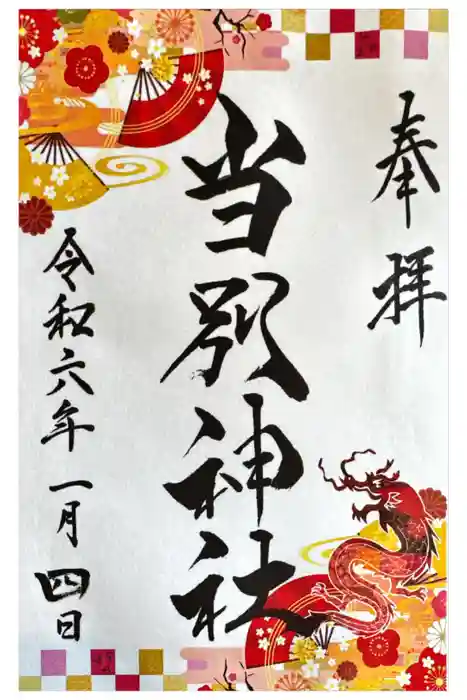 奉拝
当別神社
令和六年一月四日